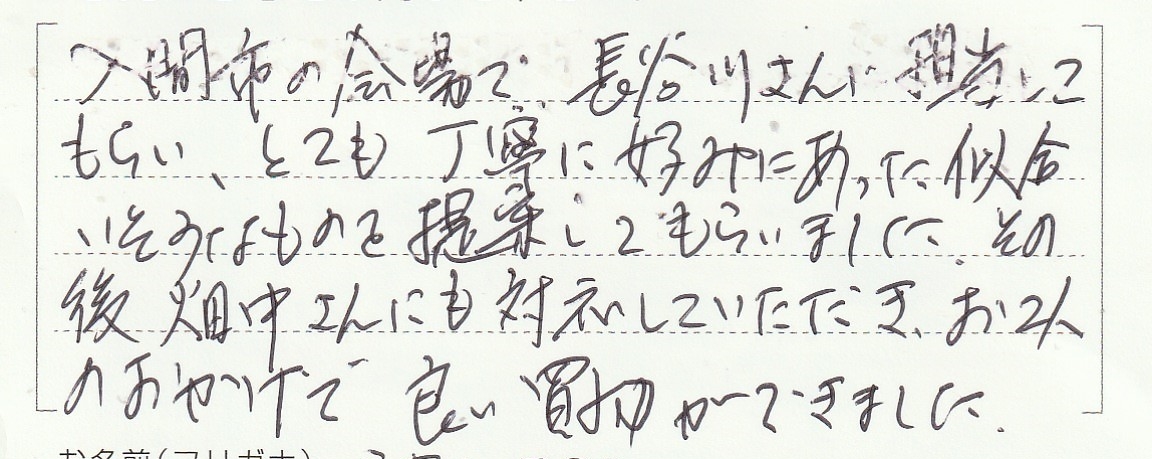 入間市の会場で、長谷川さんに担当して
もらい、とても丁寧に好みにあった似合
いそうなものを提案してもらいました。その
後畑中さんにも対応していただき、お2人
のおかげで良い買物ができました。
お名前(フリガナ)